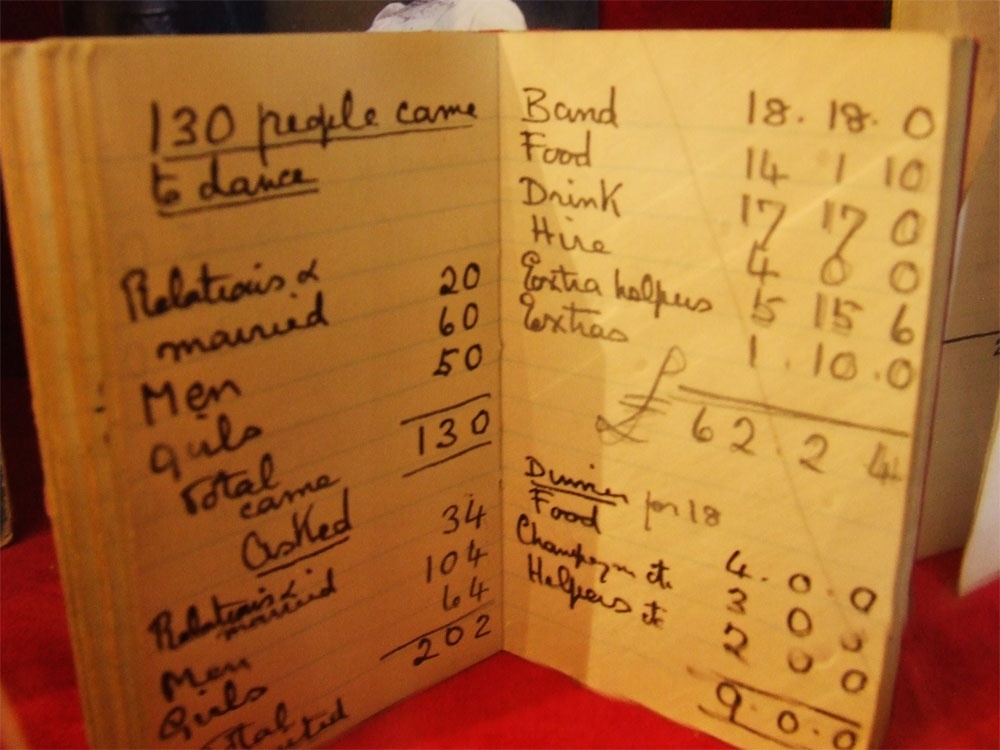 130 people came
to dance
Relations &
married 20
Men 60
Girls 50
Total came 130
Asked
Relations &
married 34
Men 104
Girls 64
Total 202
Band 18. 18. 0
Food 14 1 10
Drink 17 17 0
Hire 4 0 0
Extra helpers 5 15 6
Extras 1. 10. 0
£ 62 2 4
Dinner for 18
Food 4. 0. 0
Champagne etc 3 0 0
Helpers etc 2 0 0
9. 0. 0